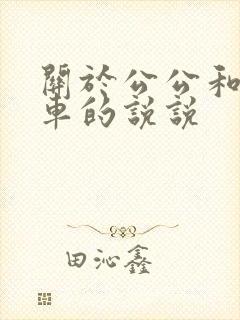 關於公公和
車的說說
田沁鑫